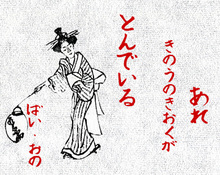 あれ
きのうのきおくが
とんでいる
ばい・おの